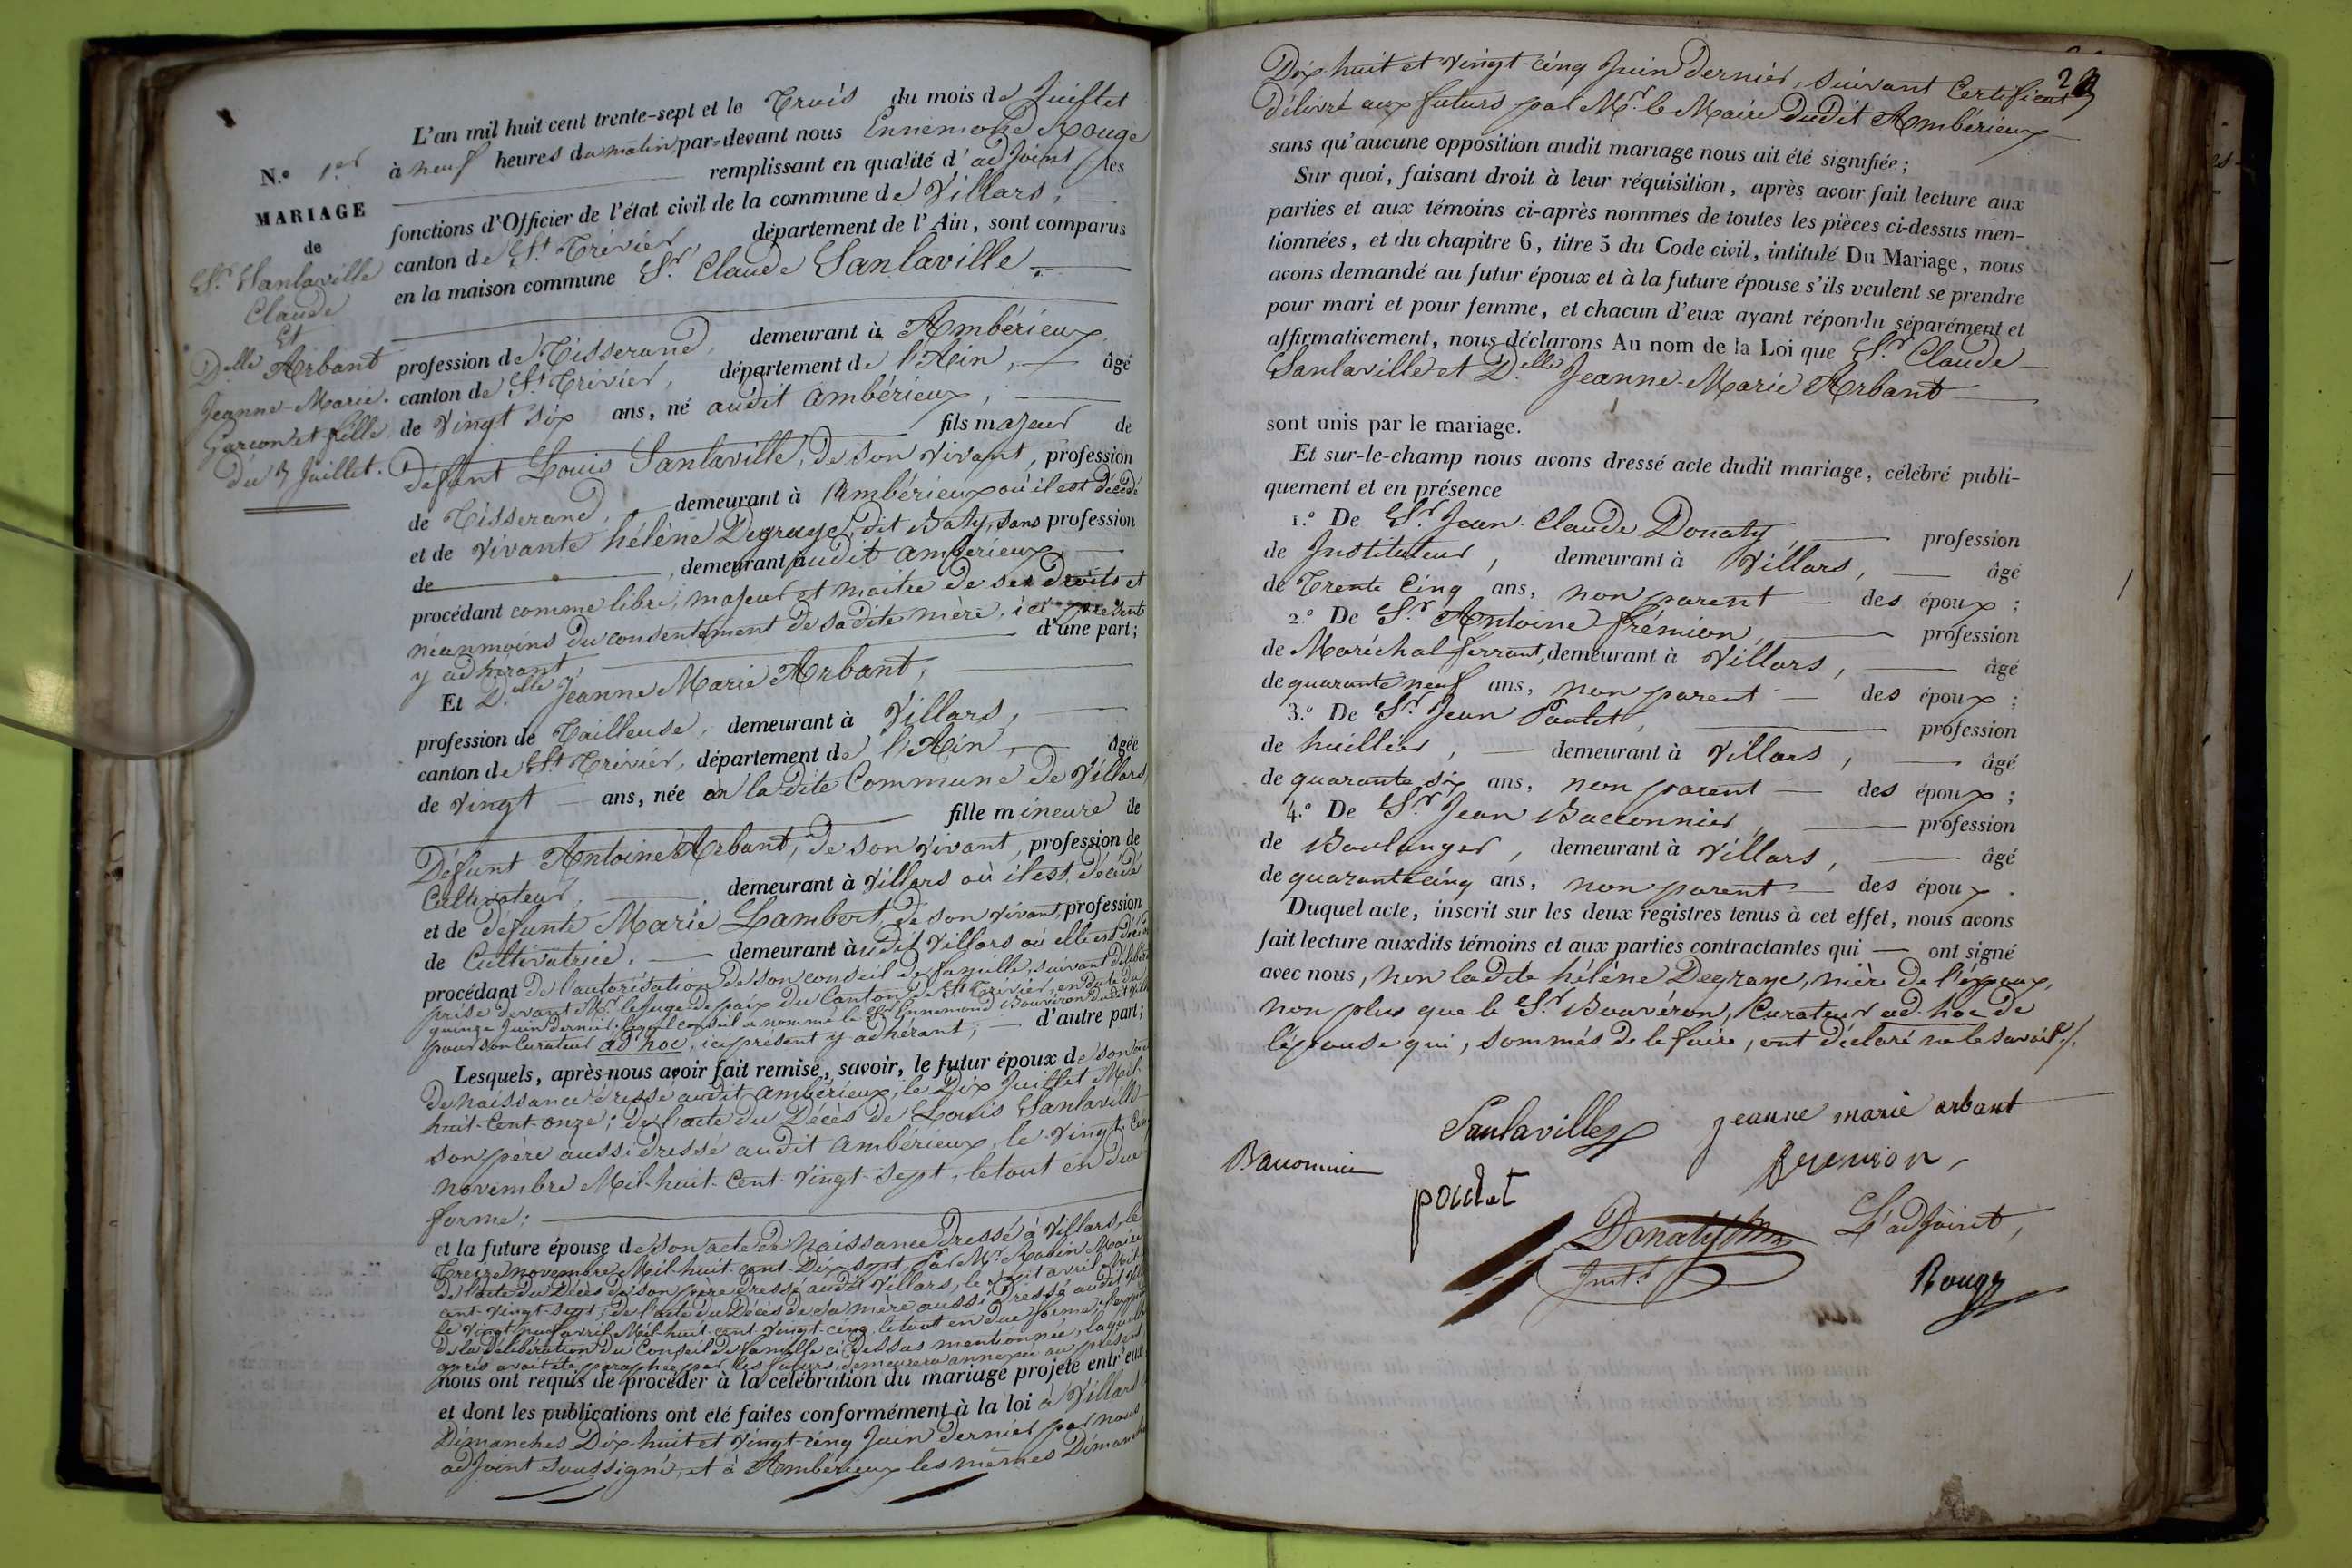 N.º 1er
MARIAGE
de
Sr. Sanlaville
Claude
Et
Delle Arbant
Jeanne-Marie.
Garcon et fille
du 3 Juillet.
L'an mil huit cent trente-sept et le Trois du mois de Juillet
à neuf heures du matin par-devant nous Ennemond Rouge
remplissant en qualité d'adjoint les
fonctions d'Officier de l'état civil de la commune de Villars,
canton de St. Trivier département de l'Ain, sont comparus
en la maison commune Sr. Claude Sanlaville,
profession de Tisserand, demeurant à Ambérieux
canton de St. Trivier, département de l'Ain, âgé
de Vingt six ans, né audit ambérieux,
fils majeur de
défunt Louis Sanlaville, de son vivant, profession
de Tisserand, demeurant à Ambérieux où il est décédé
et de vivante hélène Degraye, dit Baty, sans profession
de demeurant audit ambérieux,
procédant comme libre, majeur et maitre de ses droits et
néanmoins du consentement de sadite mère, ici présente
y adhérant, d'une part;
Et Delle Jeanne Marie Arbant,
profession de Tailleuse, demeurant à Villars,
canton de St. Trivier, département de l'Ain, âgée
de Vingt ans, née en ladite Commune de Villars
fille mineure de
Défunt Antoine Arbant, de son vivant, profession de
Cultivateur, demeurant à Villars où il est décédé
et de défunte Marie Lambert, de son vivant, profession
de Cultivatrice. demeurant audit Villars où elle est
procédant de l'autorisation de son conseil de famille, suivant
prise devant Mr. le Juge de paix du Canton de St. Trivier, en date du
quinze Juin dernier; lequel conseil a nommé le Sr. Ennemond Bouvéron dudit
pour son Curateur ad hoc, ici présent y adhérant; d'autre part;
Lesquels, après nous avoir fait remise, savoir, le futur époux de son
de naissance dressé audit ambérieux, le Dix Juillet Mil-
huit-Cent-onze; de l'acte du Décès de Louis Sanlaville
son père aussi dressé audit ambérieux, le Vingt
novembre Mil-huit-Cent-Vingt-Sept, le tout en due
forme;
et la future épouse de son acte de Naissance dressé à Villars, le
Treize novembre Mil-huit-cent-Dix-sept, Par Mr. Robin Maire
de l'acte du Décès de son père dressé audit Villars, le huit avril Mil
cent-vingt-sept; de l'acte du Décès de sa mère aussi dressé audit
le Vingt neuf avril Mil-huit-cent-vingt-cinq, le tout en due forme;
de la délibération du Conseil de famille ci-dessus mentionnée, laquelle
après avoir été paraphée par les futurs, demeurera annexée au présent
nous ont requis de procéder à la célébration du mariage projeté entr'eux
et dont les publications ont été faites conformément à la loi à Villars
Dimanches Dix-huit et Vingt-cinq Juin dernier par nous
adjoint soussigné, et à Ambérieux les mêmes Dimanches
29
Dix-huit et Vingt-cinq Juin dernier, suivant Certificat
délivré aux futurs par Mr. le Maire dudit Ambérieux
sans qu'aucune opposition audit mariage nous ait été signifiée;
Sur quoi, faisant droit à leur réquisition, après avoir fait lecture aux
parties et aux témoins ci-après nommés de toutes les pièces ci-dessus men-
tionnées, et du chapitre 6, titre 5 du Code civil, intitulé Du Mariage, nous
avons demandé au futur époux et à la future épouse s'ils veulent se prendre
pour mari et pour femme, et chacun d'eux ayant répondu séparément et
affirmativement, nous déclarons Au nom de la Loi que Sr. Claude
Sanlaville et Delle Jeanne-Marie Arbant
sont unis par le mariage.
Et sur-le-champ nous avons dressé acte dudit mariage, célébré publi-
quement et en présence
1.º De Sr. Jean-Claude Donaty, profession
de Instituteur, demeurant à Villars, âgé
de Trente Cinq ans, non parent des époux;
2.º De Sr. Antoine frémion, profession
de Maréchal ferrant, demeurant à Villars, âgé
de quarante neuf ans, non parent des époux;
3.º De Sr. Jean Poulet, profession
de huillier, demeurant à Villars, âgé
de quarante six ans, non parent des époux;
4.º De Sr. Jean Bacconnier, profession
de Boulanger, demeurant à Villars, âgé
de quarante cinq ans, non parent des époux.
Duquel acte, inscrit sur les deux registres tenus à cet effet, nous avons
fait lecture auxdits témoins et aux parties contractantes qui ont signé
avec nous, non ladite hélène Degraye, mère de l'époux,
non plus que le Sr. Bouvéron, Curateur ad-hoc de
l'épouse qui, sommés de le faire, ont déclaré ne le savoir./.
Sanlaville jeanne marie arbant
Baconnier
poulet
fremion
Donaty
Inst.r
L'adjoint,
Rouge